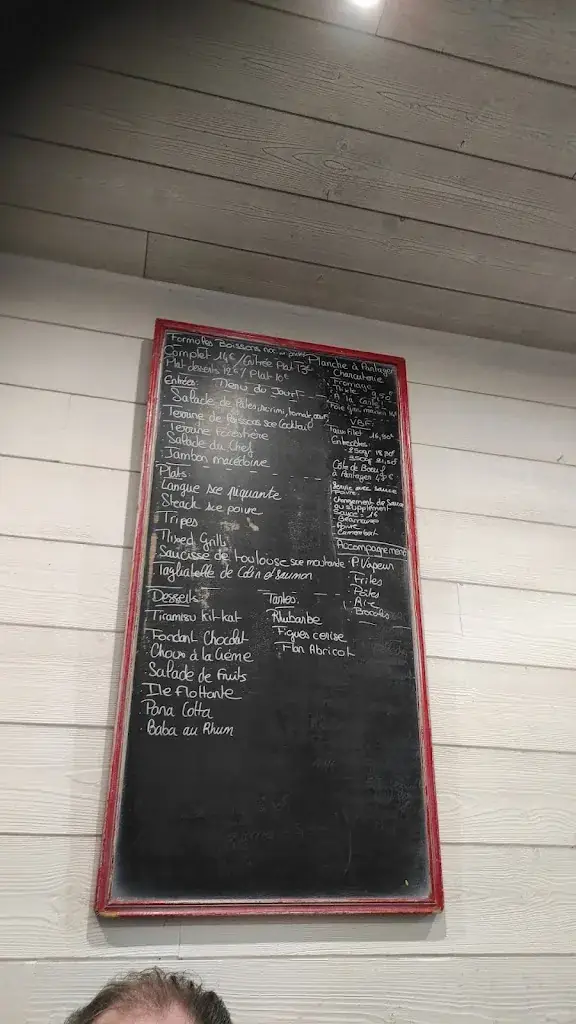 Formules Boissons non
Complet 14€ / Entrée Plat 13€
Plat desserts 12€ / Plat 10€
Entrées: Menu du Jour!
Salade de Pâtes, surimi, tomate, oeuf
Terrine de Poissons sce Cocktail
Terrine Forestière
Salade du Chef
Jambon macédoine
Plats:
Langue sce piquante
Steack sce poivre
Tripes
Mixed Grill
Saucisse de toulouse sce moutarde
Tagliatelle de Colin et Saumon
Desserts
Tiramisu Kit-kat
Fondant Chocolat
Choux à la Crème
Salade de Fruits
Ile Flottante
Pana Cotta
Baba au Rhum
Tartes:
Rhubarbe
Figues cerise
Flan Abricot
Planche à Partager
Charcuterie
Fromage
9,50
A la Carte!
Foie Gras maison
V.B.F
Faux Filet 16,90€
Entrecôtes
250gr
350gr 21,50
Côte de Boeuf
à Partager
sauce
Poivre
Changement de Sauce
ou supplément
Sauce
Poivre
Camembert
Accompagnement
P. Vapeur
Frites
Pâtes
Riz
Brocolis